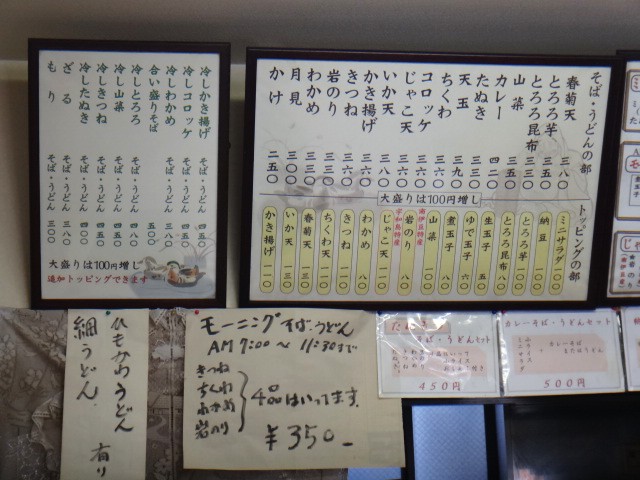 冷しかき揚げ そば・うどん 四五〇
冷しコロッケ そば・うどん 四五〇
冷しわかめ そば・うどん 四〇〇
合い盛りそば 五〇〇
冷しとろろ そば・うどん 四五〇
冷し山菜 そば・うどん 四五〇
冷しきつね そば・うどん 四五〇
冷したぬき そば・うどん 四〇〇
ざる
もり そば・うどん 三〇〇
大盛りは100円増し
追加トッピングできます
そば・うどんの部
春菊天 三八〇
とろろ芋 三五〇
とろろ昆布 三三〇
山菜 三五〇
カレー 四二〇
たぬき 三三〇
天玉 三九〇
ちくわ 三三〇
コロッケ 三六〇
じゃこ天 三六〇
いか天 三八〇
かき揚げ 三六〇
きつね 三六〇
わかめ 三三〇
岩のり 三三〇
月見 三〇〇
かけ 二五〇
大盛りは100円増し
トッピングの部
ミニサラダ 一〇〇
納豆 一〇〇
とろろ芋 一〇〇
とろろ昆布 八〇
生玉子 五〇
ゆで玉子 六〇
煮玉子
山菜 一〇〇
岩のり
宇和島特産
じゃこ天 一一〇
わかめ 八〇
きつね 一一〇
ちくわ天
春菊天 一三〇
いか天 一三〇
かき揚げ 一一〇
ひもかわうどん 有り
細うどん
モーニングそば・うどん
AM7:00〜11:30まで
きつね
ちくわ
わかめ
岩のり
4品はいってます。
¥350-
そば・うどんセット
450円
カレーそば・うどんセット
500円